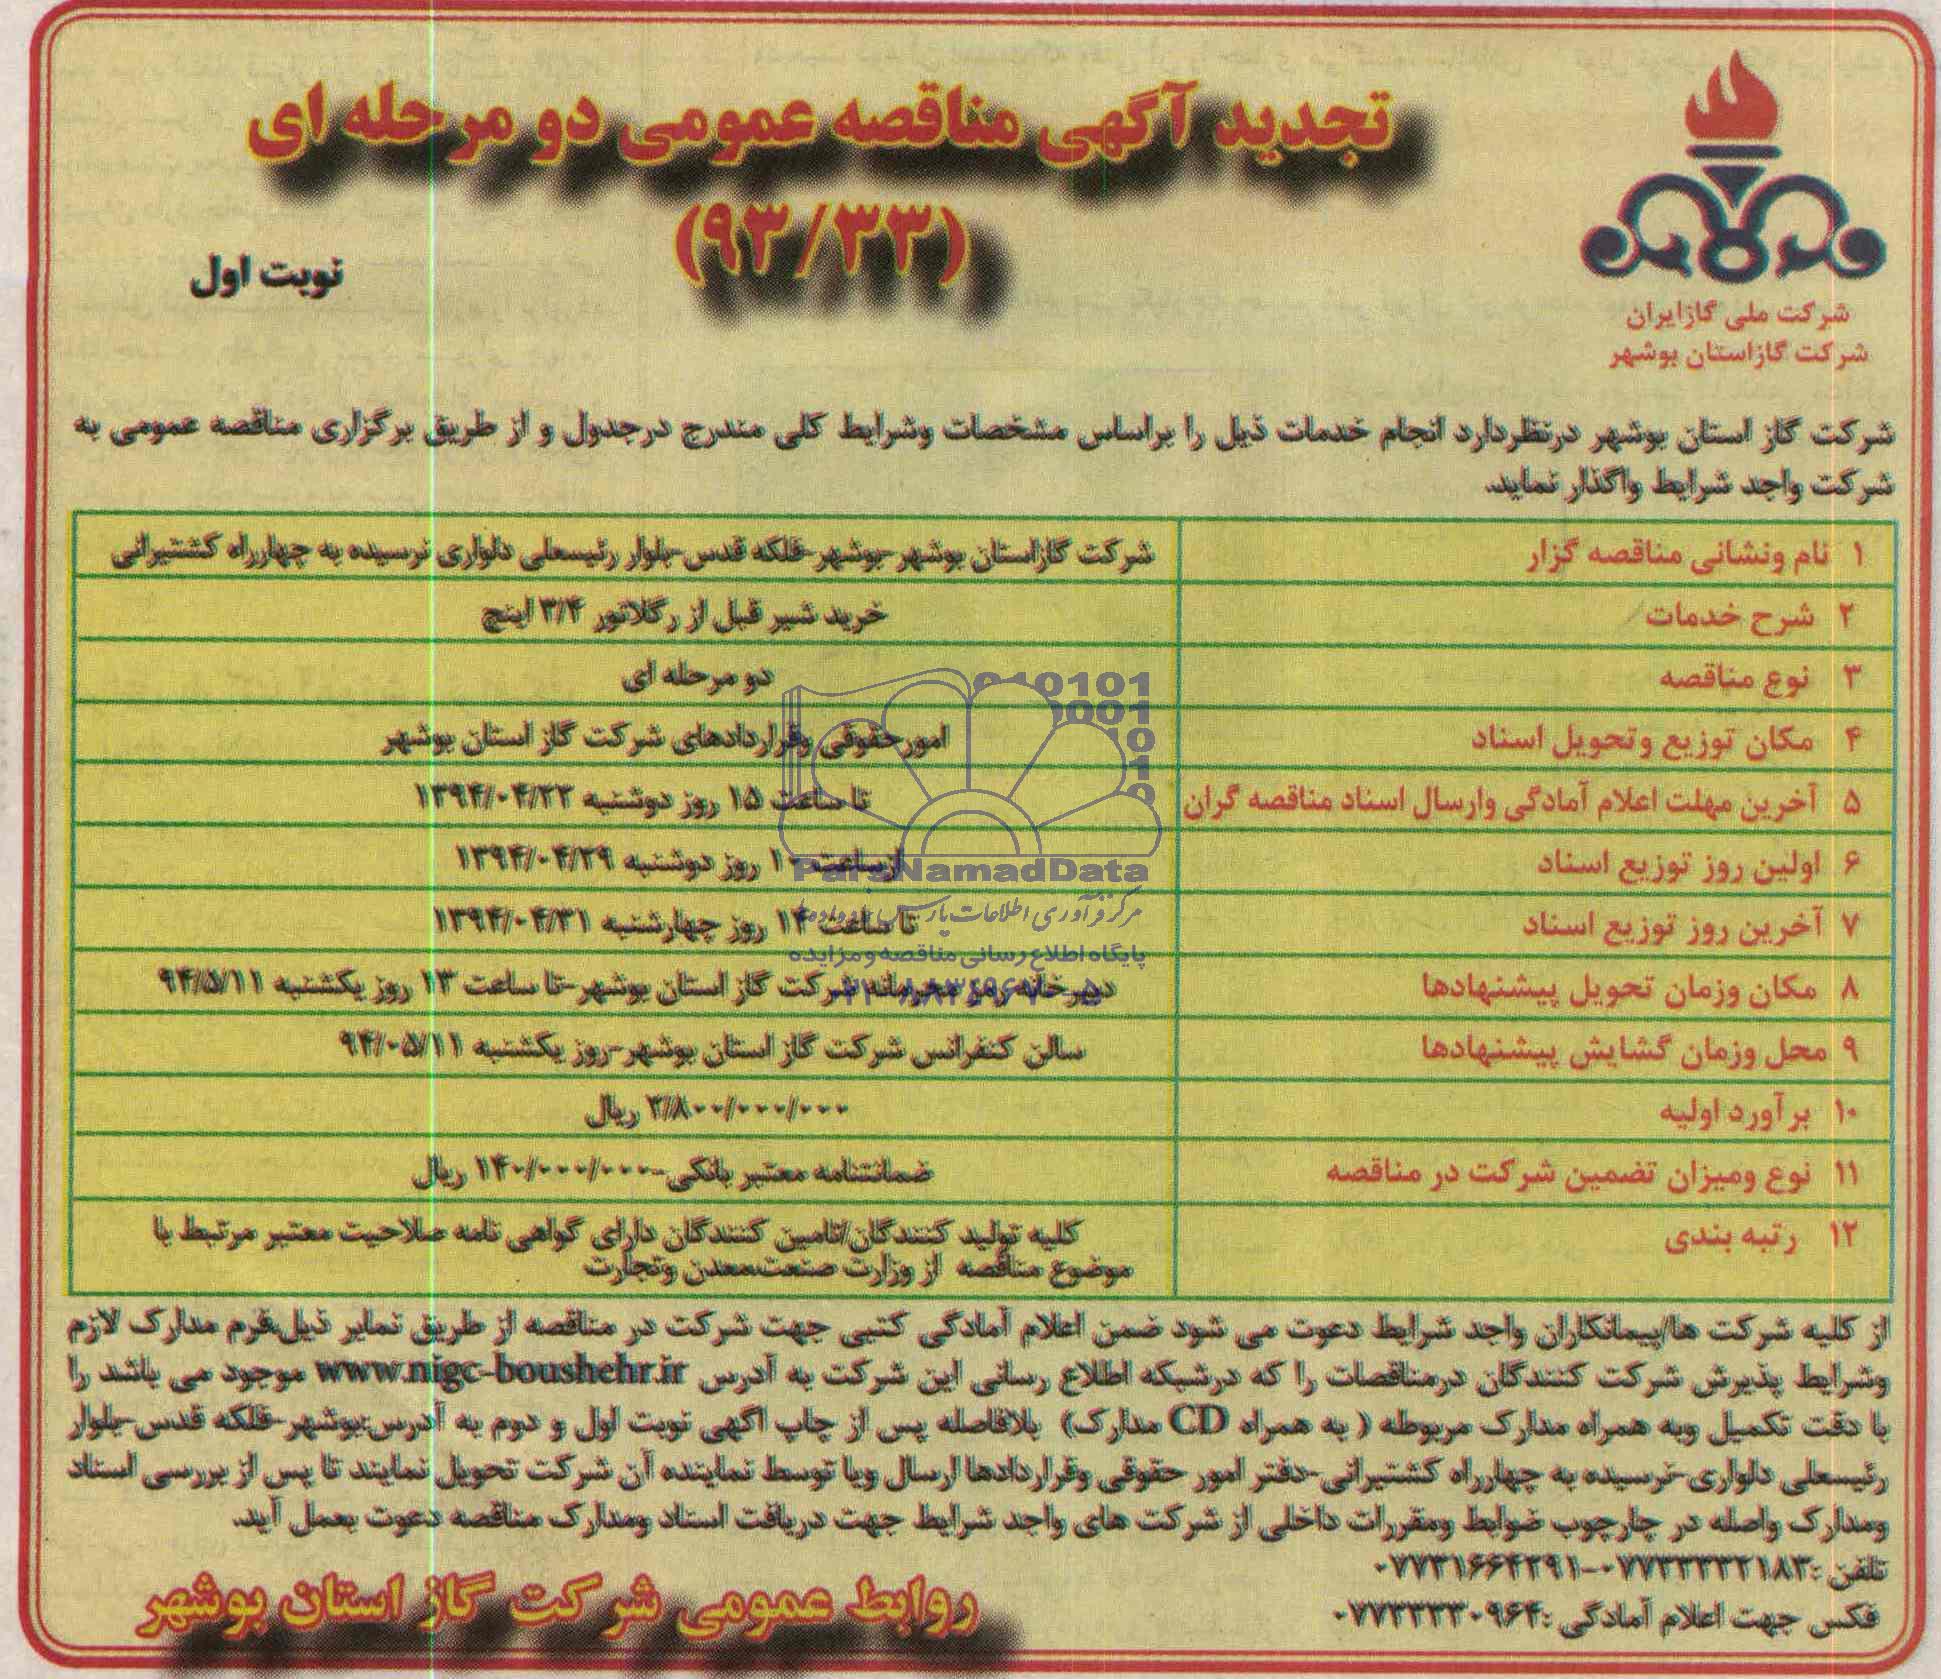 تجدید آگهی مناقصه عمومی دو مرحله ای
(۹۳/۳۳)
نوبت اول
شرکت ملی گازایران
شرکت گازاستان بوشهر
شرکت گاز استان بوشهر درنظردارد انجام خدمات ذیل را براساس مشخصات وشرایط کلی مندرج درجدول و از طریق برگزاری مناقصه عمومی به
شرکت واجد شرایط واگذار نماید.
۱ نام ونشانی مناقصه گزار شرکت گازاستان بوشهر-بوشهر-فلکه قدس-بلوار رئیسعلی دلواری نرسیده به چهارراه کشتیرانی
۲ شرح خدمات خرید شیر قبل از رگلاتور ۳/۴ اینچ
۳ نوع مناقصه دو مرحله ای
۴ مکان توزیع وتحویل اسناد امورحقوقی وقراردادهای شرکت گاز استان بوشهر
۵ آخرین مهلت اعلام آمادگی وارسال اسناد مناقصه گران تا ساعت ۱۵ روز دوشنبه ۱۳۹۴/۰۴/۲۲
۶ اولین روز توزیع اسناد ازساعت ۱۰ روز دوشنبه ۱۳۹۴/۰۴/۲۹
۷ آخرین روز توزیع اسناد تا ساعت ۱۴ روز چهارشنبه ۱۳۹۴/۰۴/۳۱
۸ مکان وزمان تحویل پیشنهادها دبیرخانه رمز محرمانه شرکت گاز استان بوشهر-تا ساعت ۱۳ روز یکشنبه ۹۴/۵/۱۱
۹ محل وزمان گشایش پیشنهادها سالن کنفرانس شرکت گاز استان بوشهر-روز یکشنبه ۹۴/۰۵/۱۱
۱۰ برآورد اولیه ۲/۸۰۰/۰۰۰/۰۰۰ ریال
۱۱ نوع ومیزان تضمین شرکت در مناقصه ضمانتنامه معتبر بانکی-۱۴۰/۰۰۰/۰۰۰ ریال
۱۲ رتبه بندی کلیه تولید کنندگان/تامین کنندگان دارای گواهی نامه صلاحیت معتبر مرتبط با
موضوع مناقصه از وزارت صنعت،معدن وتجارت
010101
ParsNamadData
مرکز فرآوری اطلاعات پارس نماد داده ها
پایگاه اطلاع رسانی مناقصه و مزایده
از کلیه شرکت ها/پیمانکاران واجد شرایط دعوت می شود ضمن اعلام آمادگی کتبی جهت شرکت در مناقصه از طریق نمابر ذیل،فرم مدارک لازم
وشرایط پذیرش شرکت کنندگان درمناقصات را که درشبکه اطلاع رسانی این شرکت به آدرس www.nigc-boushehr.ir موجود می باشد را
با دقت تکمیل وبه همراه مدارک مربوطه ( به همراه CD مدارک) بلافاصله پس از چاپ اگهی نوبت اول و دوم به آدرس:بوشهر-فلکه قدس-بلوار
رئیسعلی دلواری-نرسیده به چهارراه کشتیرانی-دفتر امور حقوقی وقراردادها ارسال ویا توسط نماینده آن شرکت تحویل نمایند تا پس از بررسی اسناد
ومدارک واصله در چارچوب ضوابط ومقررات داخلی از شرکت های واجد شرایط جهت دریافت اسناد ومدارک مناقصه دعوت بعمل آید.
تلفن :۰۷۷۳۳۳۳۲۱۸۳-۰۷۷۳۱۶۶۴۲۹۱
فکس جهت اعلام آمادگی :۰۷۷۳۳۳۳۰۹۶۴
روابط عمومی شرکت گاز استان بوشهر